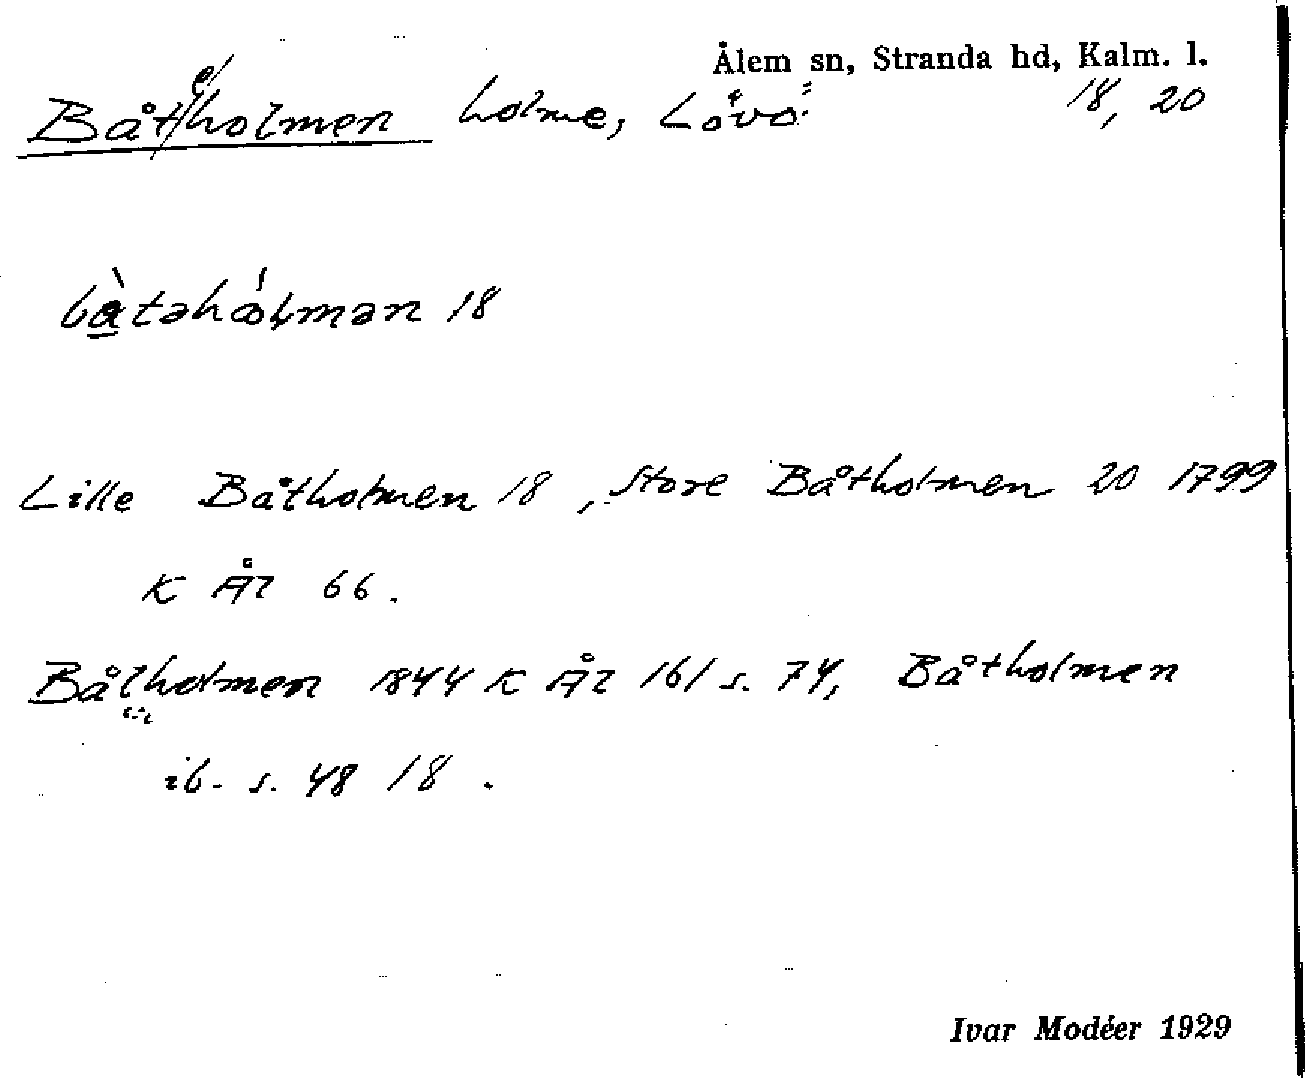 Ålem sn, Stranda hd, Kalm. l.
Båteholmen holme, Lövö 18, 20
bàtəhólmən 18
Lille Båtholmen 18, Store Båtholmen 20 1799
K Ål 66.
Bålholmen 1844 K Ål 161 s. 74, Båtholmen
ib. s. 48 18.
Ivar Modéer 1929